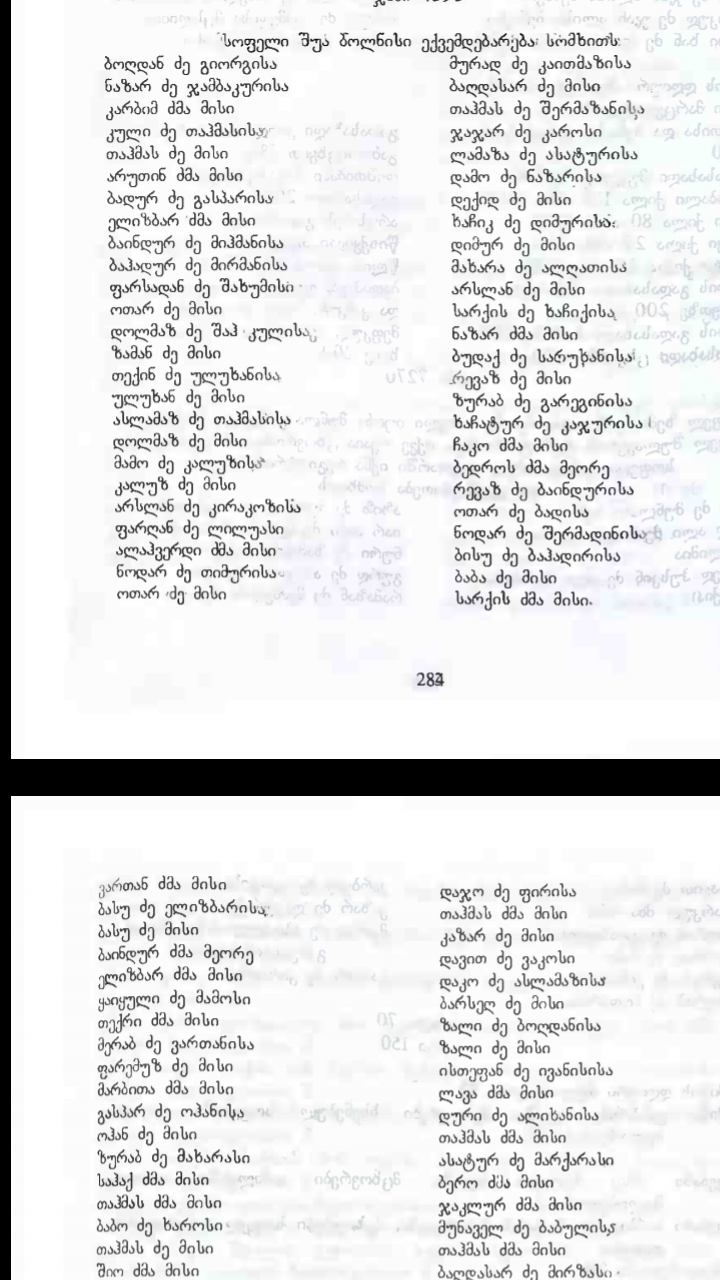 სოფელი შუა ბოლნისი ექვემდებარება სომხითს
ბოღდან ძე გიორგისა
ნაზარ ძე ჯამბაკურისა
კარბიმ ძმა მისი
კული ძე თაჰმასისა
თაჰმას ძე მისი
არუთინ ძმა მისი
ბადურ ძე გასპარისა
ელიზბარ ძმა მისი
ბაინდურ ძე მიჰმანისა
ბაჰადურ ძე მირმანისა
ფარსადან ძე შახუმისი
ოთარ ძე მისი
დოლმაზ ძე შაჰ კულისა
ზამან ძე მისი
თექინ ძე ულუხანისა
ულუხან ძე მისი
ასლამაზ ძე თაჰმასისა
დოლმაზ ძე მისი
მამო ძე კალუზისა
კალუზ ძე მისი
არსლან ძე კირაკოზისა
ფარღან ძე ლილუასი
ალაჰვერდი ძმა მისი
ნოდარ ძე თიმურისა
ოთარ ძე მისი
მურად ძე კაითმაზისა
ბაღდასარ ძე მისი
თაჰმას ძე შერმაზანისა
ჯაჯარ ძე კაროსი
ლამაზა ძე ასატურისა
დამო ძე ნაზარისა
დექიდ ძე მისი
ხაჩიკ ძე დიმურისა
დიმურ ძე მისი
მახარა ძე ალღათისა
არსლან ძე მისი
სარქის ძე ხაჩიქისა
ნაზარ ძმა მისი
ბუდაქ ძე სარუხანისა
რევაზ ძე მისი
ზურაბ ძე გარეგინისა
ხაჩატურ ძე კაჯურისა
ჩაკო ძმა მისი
ბედროს ძმა მეორე
რევაზ ძე ბაინდურისა
ოთარ ძე ბადისა
ნოდარ ძე შერმადინისა
ბისუ ძე ბაჰადირისა
ბაბა ძე მისი
სარქის ძმა მისი.
ვართან ძმა მისი
ბასუ ძე ელიზბარისა
ბასუ ძე მისი
ბაინდურ ძმა მეორე
ელიზბარ ძმა მისი
ყაიყული ძე მამოსი
თექრი ძმა მისი
მერაბ ძე ვართანისა
ფარემუზ ძე მისი
მარბითა ძმა მისი
გასპარ ძე ოჰანისა
ოჰან ძე მისი
ზურაბ ძე მახარასი
საჰაქ ძმა მისი
თაჰმას ძმა მისი
ბაბო ძე ხაროსი
თაჰმას ძე მისი
შიო ძმა მისი
დაჯო ძე ფირისა
თაჰმას ძმა მისი
კაზარ ძე მისი
დავით ძე ვაკოსი
დაკო ძე ასლამაზისა
ბარსეღ ძე მისი
ზალი ძე ბოღდანისა
ზალი ძე მისი
ისთეფან ძე ივანისისა
ლავა ძმა მისი
დური ძე ალიხანისა
თაჰმას ძმა მისი
ასატურ ძე მარქარასი
ბერო ძმა მისი
ჯაკლურ ძმა მისი
მუნაველ ძე ბაბულისა
თაჰმას ძმა მისი
ბაღდასარ ძე მირზასი